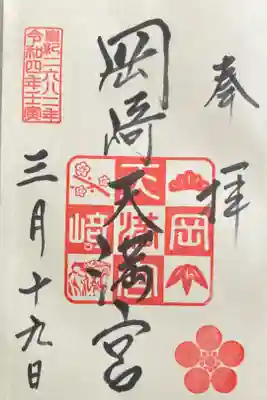 奉拝
岡崎天満宮
皇紀二六八二年
令和四年壬寅
三月十九日
岡
天満宮
崎